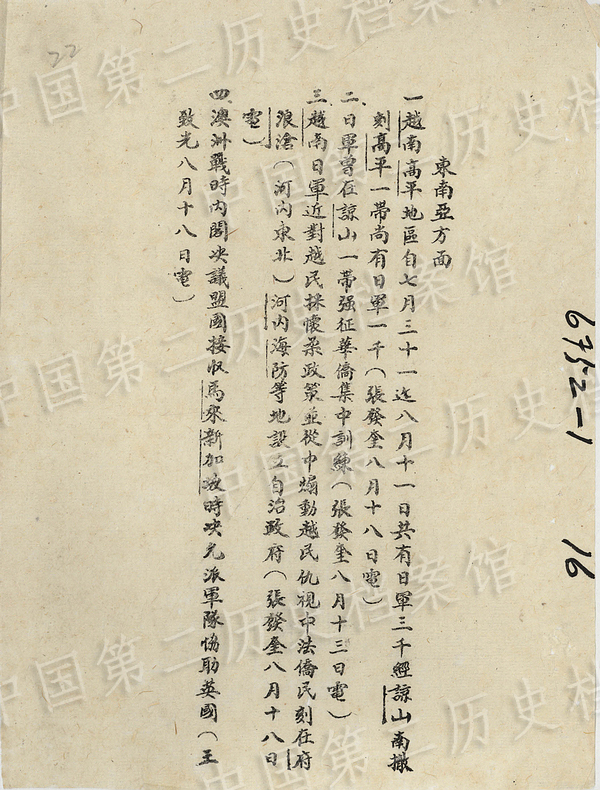 22
東南亞方面
一、越南高平地區自七月三十一迄八月十一日共有日軍三千經諒山南撤
刻高平一帶尚有日軍一千（張發奎八月十八日電）
二、日軍曾在諒山一帶强征華僑集中訓練（張發奎八月十三日電）
三、越南日軍近對越民採懷柔政策並從中煽動越民仇視中法僑民刻在府
浪滄（河內東北）河內海防等地設立自治政府（張發奎八月十八日
電）
四、澳洲戰時內閣決議盟國接收馬來新加坡時決先派軍隊協助英國（王
致光八月十八日電）
6752-1
16
中国第二历史档案馆